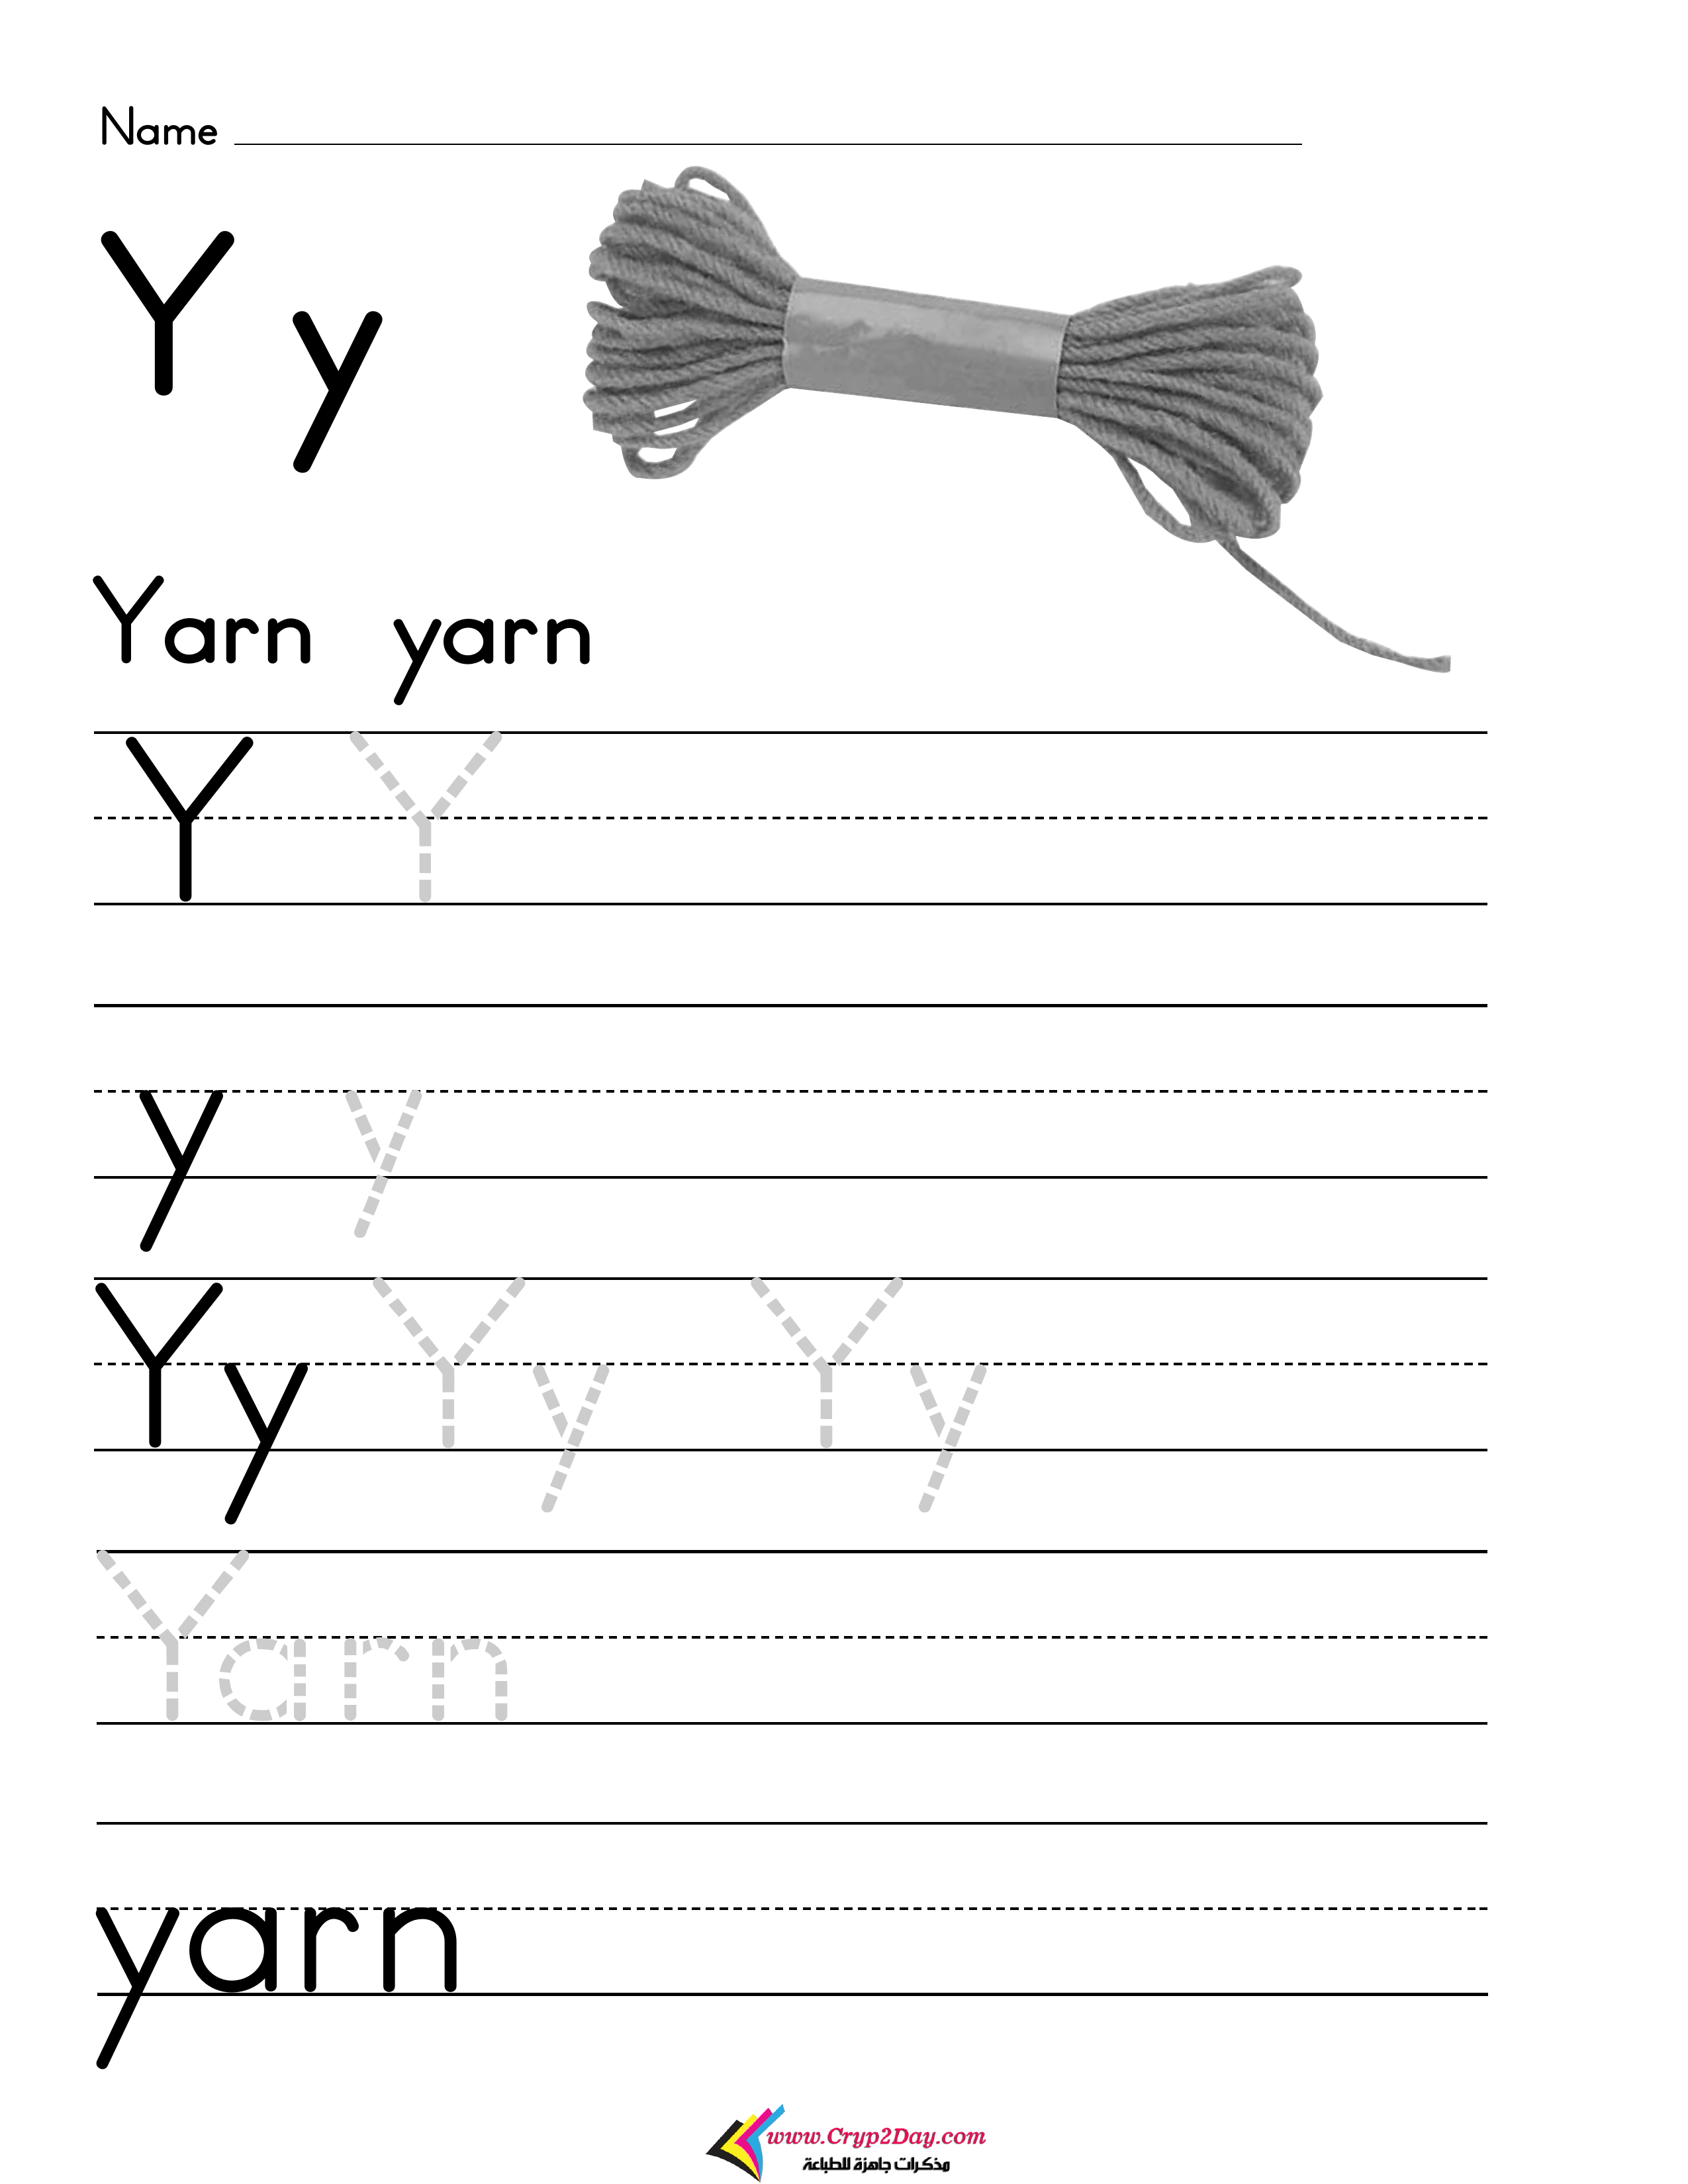 Name
Y y
Yarn yarn
Y Y
y y
Yy Yy Yy
Yarn
yarn
www.Cryp2Day.com
مذكرات جاهزة للطباعة